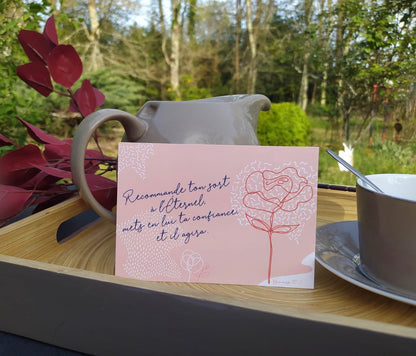 Recommande ton sort
à l'Éternel,
mets en lui ta confiance,
et il agira.